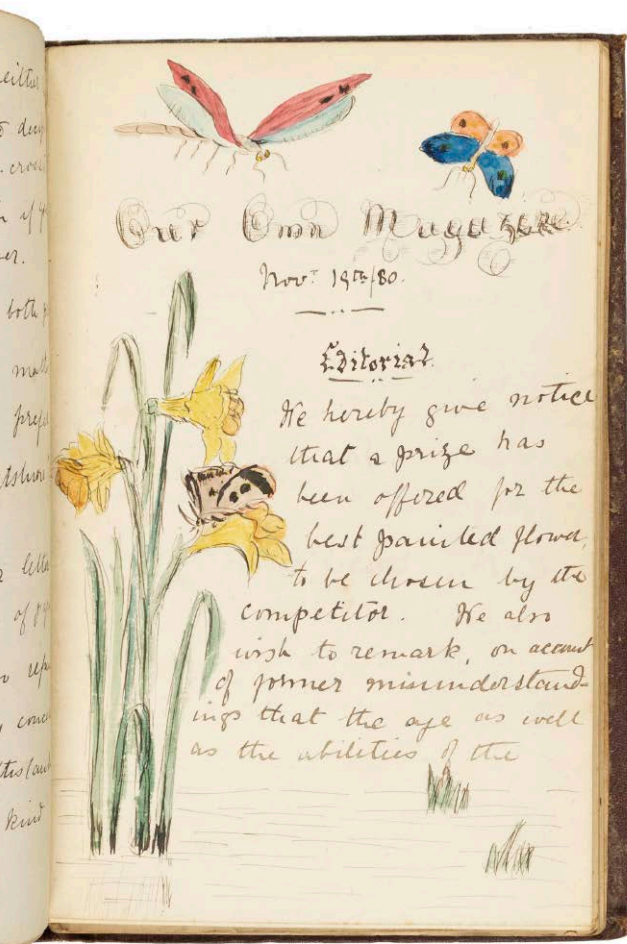 both
kind
Our Own Magazine
Novr. 19th/80.
Editorial.
We hereby give notice
that a prize has
been offered for the
best painted flower,
to be chosen by the
competitor. We also
wish to remark, on account
of former misunderstand-
ings that the age as well
as the abilities of the